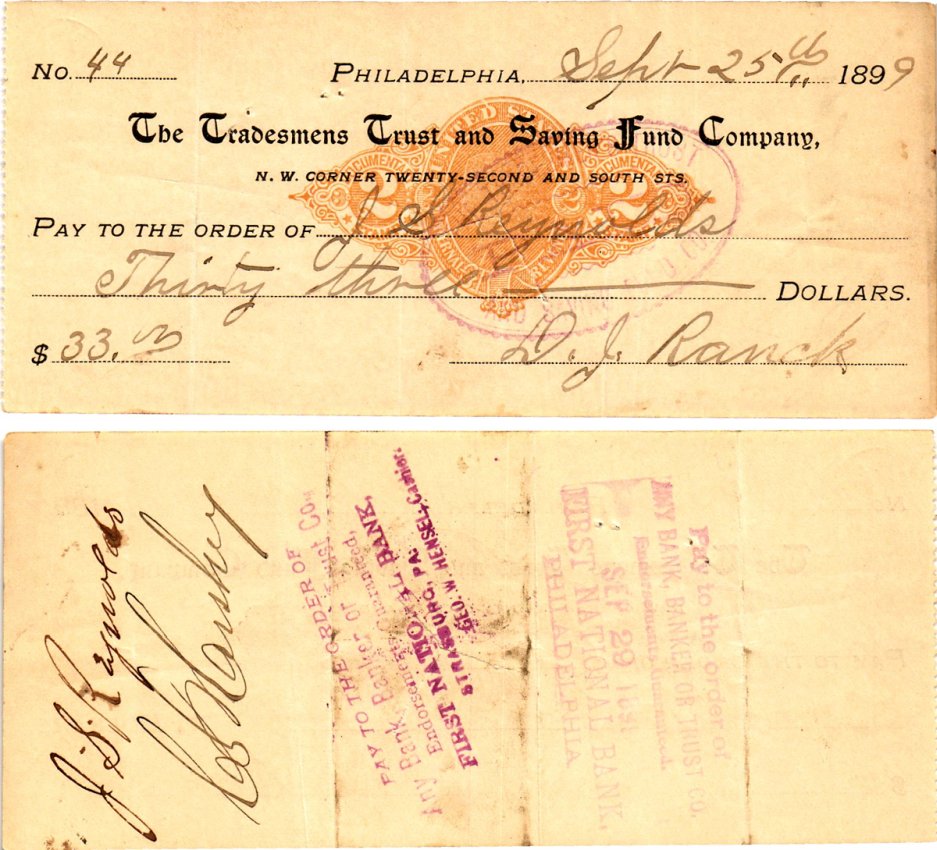 No. 44 Philadelphia, Sept 25th 1899
The Tradesmens Trust and Saving Fund Company,
N. W. CORNER TWENTY-SECOND AND SOUTH STS.
PAY TO THE ORDER OF J S Reynolds
Thirty three DOLLARS.
$ 33.00 D. J. Ranck
UNITED STATES
DOCUMENTARY
2 2
J. S. Reynolds
PAY TO THE ORDER OF
Any Bank, Banker or Trust Com
Endorsements Guaranteed,
FIRST NATIONAL BANK,
STRASBURG, PA.
GEO. W. HENSEL, Cashier.
Pay to the order of
ANY BANK, BANKER OR TRUST CO.
Endorsements Guaranteed
SEP 29 1899
FIRST NATIONAL BANK,
PHILADELPHIA